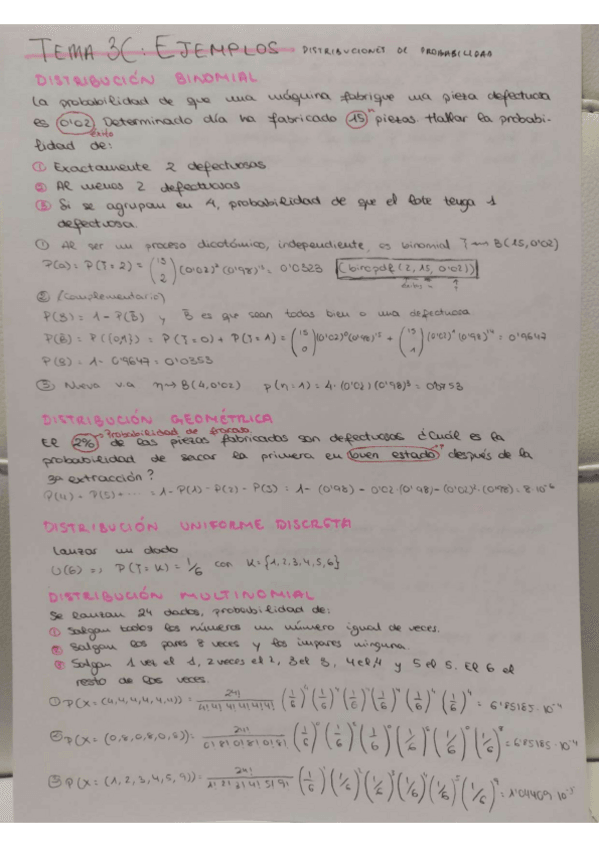 TEMA 3C: EJEMPLOS DISTRIBUCIONES DE PROBABILIDAD
DISTRIBUCIÓN BINOMIAL
La probabilidad de que una máquina fabrique una pieza defectuosa
es 0'02. Determinado día ha fabricado 15 piezas. Hallar la probabi-
éxito
n
lidad de:
① Exactamente 2 defectuosas
② Al menos 2 defectuosas
③ Si se agrupan en 4, probabilidad de que el lote tenga 1
defectuosa.
① Al ser un proceso dicotómico, independiente, es binomial T → B(15, 0'02)
P(a) = P(T=2) = (15 2) (0'02)² (0'98)¹³ = 0'0323 (binopdf(2, 15, 0'02))
② (Complementario)
P(B) = 1 - P(B̄) y B̄ es que sean todas bien o una defectuosa.
P(B̄) = P({0,1}) = P(T=0) + P(T=1) = (15 0)(0'02)⁰(0'98)¹⁵ + (15 1)(0'02)¹(0'98)¹⁴ = 0'9647
P(B) = 1 - 0'9647 = 0'0353
③ Nueva v.a η → B(4, 0'02) P(η=1) = 4·(0'02)(0'98)³ = 0'0753
DISTRIBUCIÓN GEOMÉTRICA
Probabilidad de fracaso
El 2% de las piezas fabricadas son defectuosas ¿Cuál es la
probabilidad de sacar la primera en buen estado después de la
3ª extracción?
P(4) + P(5) + ... = 1 - P(1) - P(2) - P(3) = 1 - (0'98) - 0'02·(0'98) - (0'02)²·(0'98) = 8·10⁻⁶
DISTRIBUCIÓN UNIFORME DISCRETA
Lanzar un dado
U(6) => P(T=K) = 1/6 con K = {1,2,3,4,5,6}
DISTRIBUCIÓN MULTINOMIAL
Se lanzan 24 dados, probabilidad de:
① Salgan todos los números un número igual de veces.
② Salgan los pares 8 veces y los impares ninguna.
③ Salgan 1 vez el 1, 2 veces el 2, 3 el 3, 4 el 4 y 5 el 5. El 6 el
resto de las veces.
① P(X = (4,4,4,4,4,4)) = 24!/(4!4!4!4!4!4!) (1/6)⁴ (1/6)⁴ (1/6)⁴ (1/6)⁴ (1/6)⁴ (1/6)⁴ = 6'85185·10⁻⁴
② P(X = (0,8,0,8,0,8)) = 24!/(0!8!0!8!0!8!) (1/6)⁰ (1/6)⁸ (1/6)⁰ (1/6)⁸ (1/6)⁰ (1/6)⁸ = 6'85185·10⁻⁴
③ P(X = (1,2,3,4,5,9)) = 24!/(1!2!3!4!5!9!) (1/6)¹ (1/6)² (1/6)³ (1/6)⁴ (1/6)⁵ (1/6)⁹ = 1'04409·10⁻³